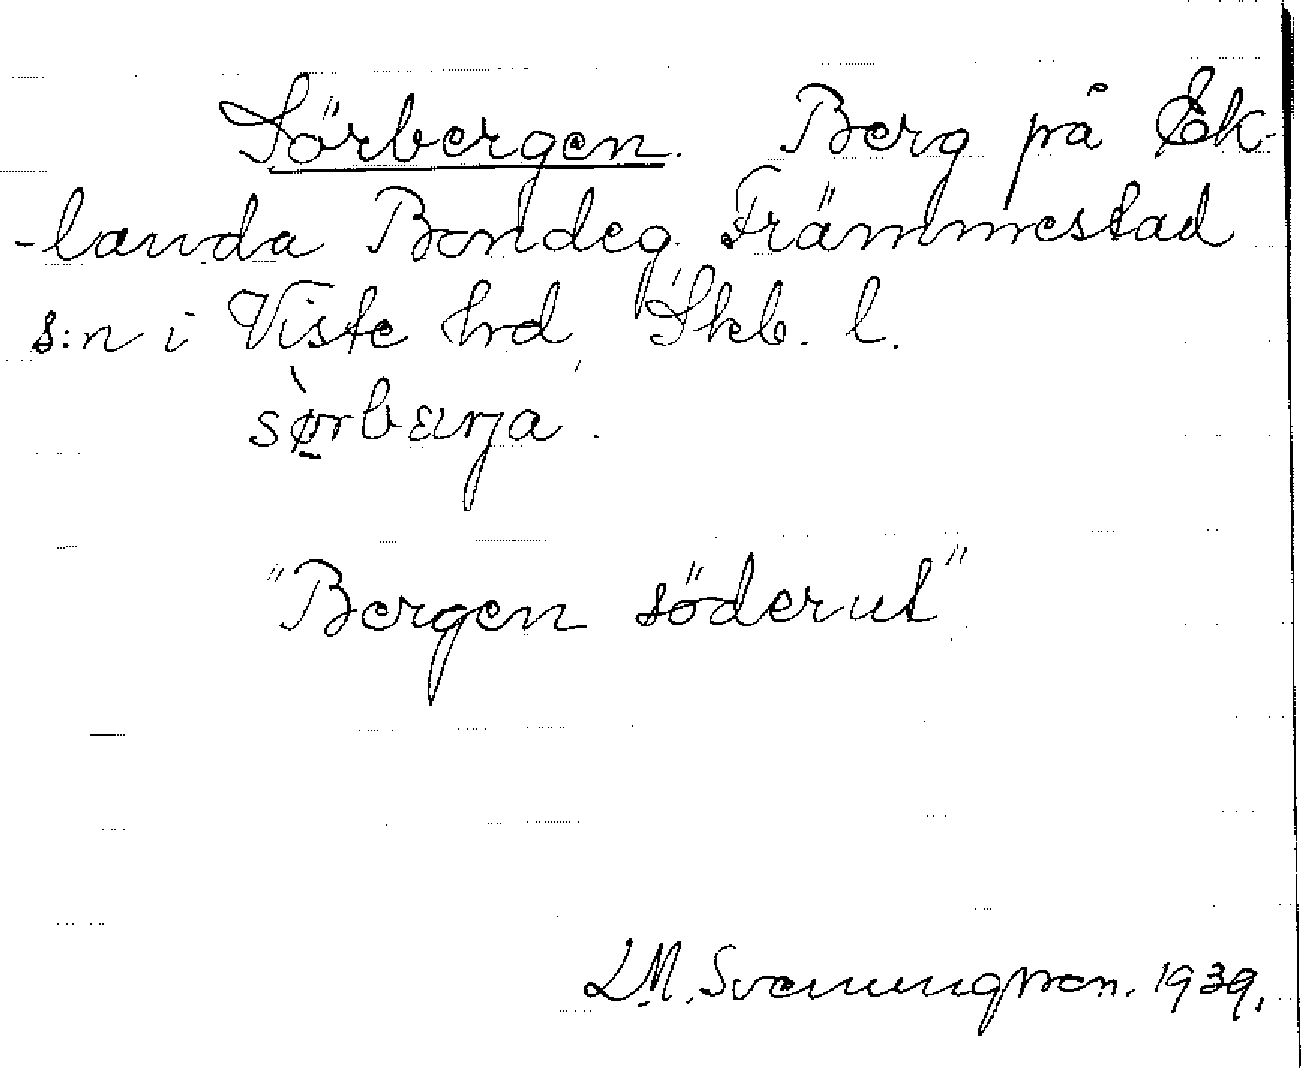 Sörbergen. Berg på Ek-
-landa Bondeg. Främmestad
s:n i Viste hrd, Skb. l.
sørbærja.
"Bergen söderut"
L.M. Svenungsson. 1939.